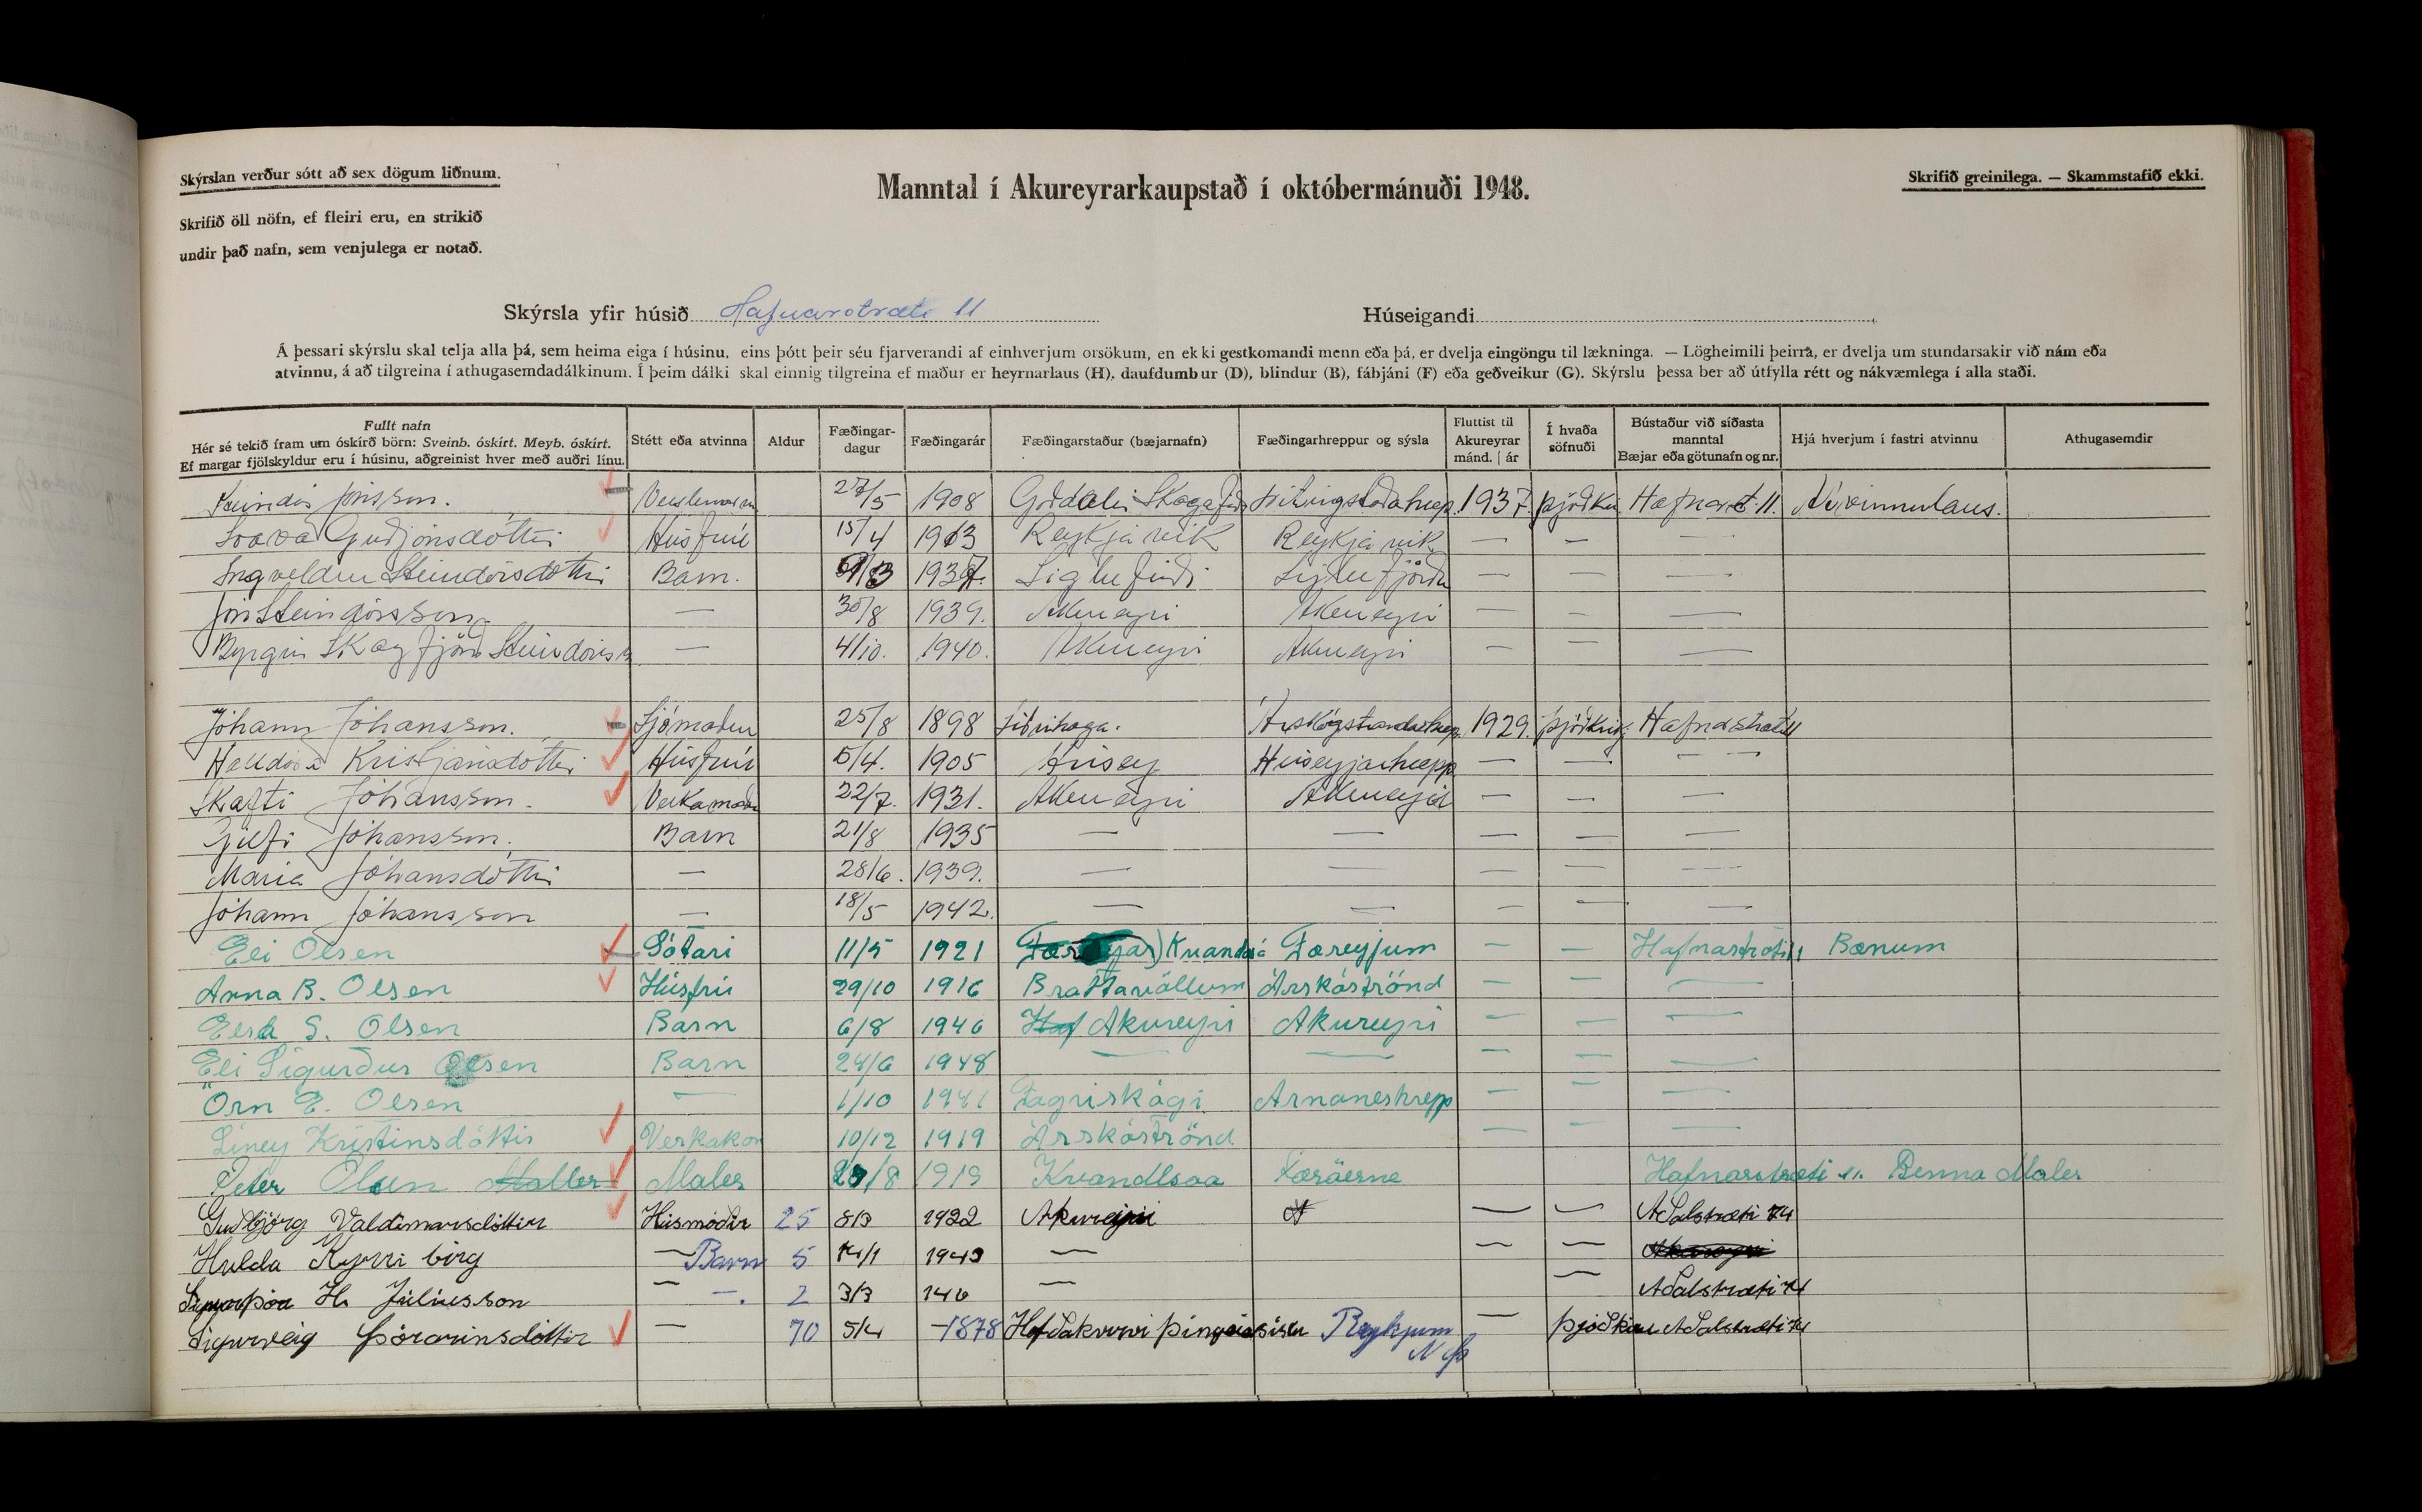 Skýrslan verður sótt að sex dögum liðnum.
Manntal í Akureyrarkaupstað í októbermánuði 1948.
Skrifið greinilega. — Skammstafið ekki.
Skrifið öll nöfn, ef fleiri eru, en strikið
undir það nafn, sem venjulega er notað.
Skýrsla yfir húsið Hafnarstræti 11 Húseigandi
Á þessari skýrslu skal telja alla þá, sem heima eiga í húsinu, eins þótt þeir séu fjarverandi af einhverjum orsökum, en ekki gestkomandi menn eða þá, er dvelja eingöngu til lækninga. — Lögheimili þeirra, er dvelja um stundarsakir við nám eða
atvinnu, á að tilgreina í athugasemdadálkinum. Í þeim dálki skal einnig tilgreina ef maður er heyrnarlaus (H), daufdumbur (D), blindur (B), fábjáni (F) eða geðveikur (G). Skýrslu þessa ber að útfylla rétt og nákvæmlega í alla staði.
Fullt nafn
Hér sé tekið fram um óskírð börn: Sveinb. óskírt. Meyb. óskírt.
Ef margar fjölskyldur eru í húsinu, aðgreinist hver með auðri línu.
Stétt eða atvinna
Aldur
Fæðingar-
dagur
Fæðingarár
Fæðingarstaður (bæjarnafn)
Fæðingarhreppur og sýsla
Fluttist til
Akureyrar
mánd. | ár
Í hvaða
söfnuði
Bústaður við síðasta
manntal
Bæjar eða götunafn og nr.
Hjá hverjum í fastri atvinnu
Athugasemdir
Steindór Jónsson. 27/5 1908 Goðdalir Skagafirði 1937. Þjóðkir Hafnarst 11. Atvinnulaus.
Svava Guðjónsdóttir Húsfrú 15/4 1913 Reykjavík Reykjavík — — —
Ingveldur Steindórsdóttir Barn. 1937. Siglufirði Siglufjörður — — —
Jón Steindórsson. — 30/8 1939. Akureyri Akureyri — — —
Byrgir Skagfjörð Steindórss — 4/10. 1940. Akureyri Akureyri — — —
Jóhann Jóhansson. Sjómaður 25/8 1898 Litluhaga. Árskógstrandarhrep. 1929. Þjóðkirkj Hafnastræti 11
Halldóra Kristjánsdóttir Húsfrú 5/4. 1905 Hrísey Hríseyjarhrepp — — —
Skafti Jóhansson. Verkamaður 22/7. 1931. Akureyri Akureyri — — —
Gylfi Jóhansson. Barn 21/8 1935 — — — — —
María Jóhansdóttir — 28/6. 1939. — — — — —
Jóhann Jóhansson — 18/5 1942. — — — — —
Eli Olsen Sótari 11/5 1921 Færeyjar) Færeyjum — — Hafnastræti 11 Bænum
Anna B. Olsen Húsfrú 29/10 1916 Brattavöllum Árskóströnd — — —
Elsa S. Olsen Barn 6/8 1946 Haf Akureyri Akureyri — — —
Eli Sigurður Olsen Barn 24/6 1948 — — — — —
Örn E. Olsen — 1/10 1941 Fagriskógi Arnaneshrepp — — —
Líney Kristinsdóttir Verkakon 10/12 1919 Árskóströnd — — —
Peter Olsen Maller Maler 1919 Kvandlsaa Færäerne Hafnarstræti 11. Benna Maler
Guðbjörg Valdimarsdóttir Húsmóðir 25 8/3 1922 Akureyri A — — Aðalstræti 74
Hulda Kyrri birg — Barn 5 14/1 1943 — — — Akureyri
Sigurþór H. Júlíusson —. 2 3/3 146 — — Aðalstræti 74
Sigurveig Þórarinsdóttir — 70 5/4 1878 Reykjum — Þjóðkirk Aðalstræti 74